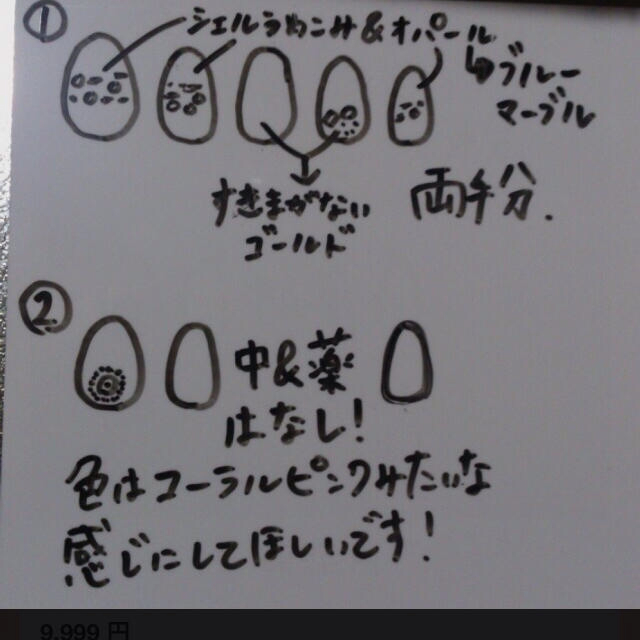 ① シェルうめこみ&オパール
↳ブルー
マーブル
すきまがない
ゴールド
両手分.
②
中&薬
はなし!
色はコーラルピンクみたいな
感じにしてほしいです!
9,999 円